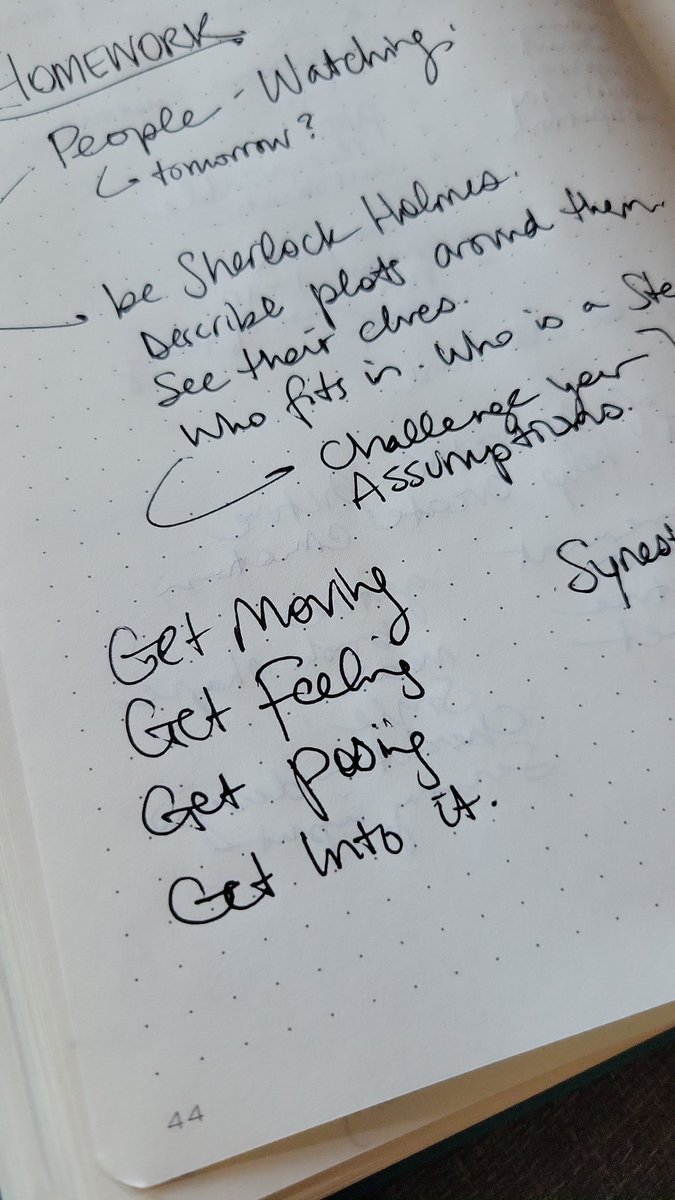 HOMEWORK
People-Watching.
tomorrow?
be Sherlock Holmes.
Describe plots around them.
See their clues.
Who fits in. Who is a Ste
Challenge your
Assumptions.
Synes
Get Moving
Get Feeling
Get posing
Get into it.
44